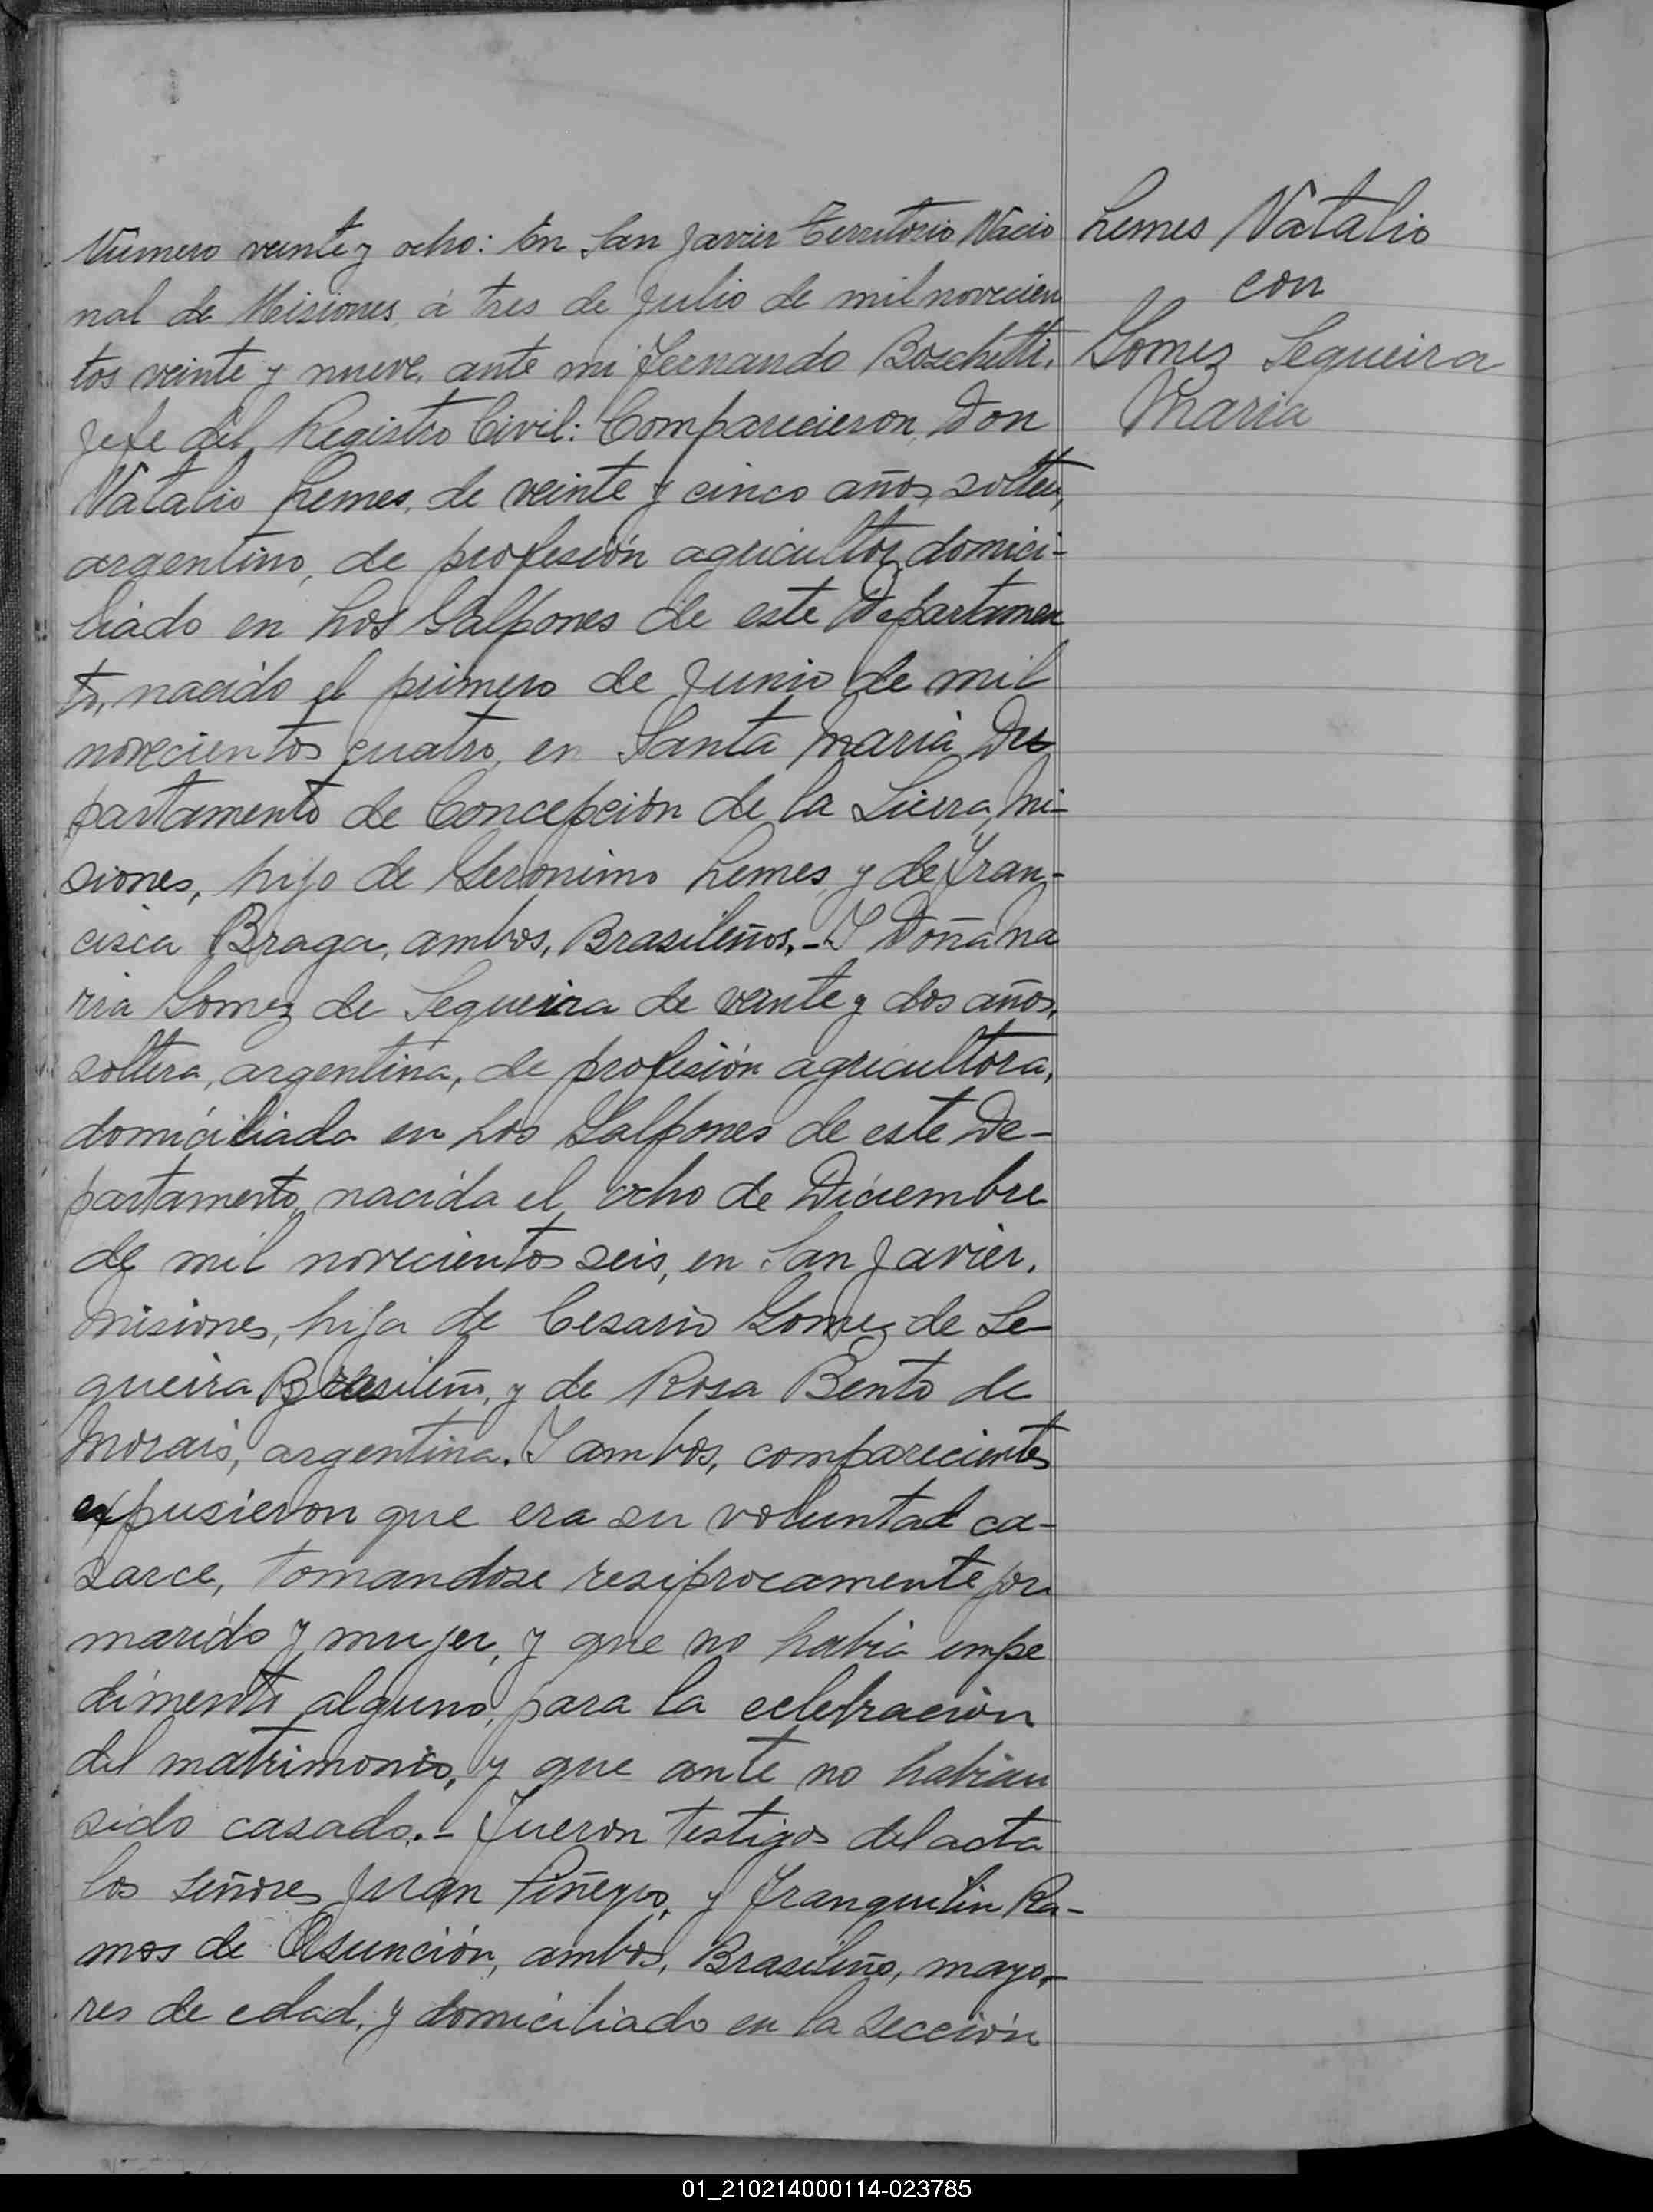 Número veinte y ocho: En San Javier Territorio Nacio
nal de Misiones, á tres de Julio de mil novecien
tos veinte y nueve, ante mi Fernando Boschetti,
Jefe del Registro Civil: Comparecieron, Don
Natalio Lemes, de veinte y cinco años, soltero,
argentino, de profesión agricultor, domici-
liado en Los Galpones de este Departamen
to, nacido el primero de Junio de mil
novecientos cuatro, en Santa Maria De
partamento de Concepción de la Sierra, Mi-
siones, hijo de Geronimo Lemes, y de Fran-
cisca Braga, ambos, Brasileños.- Y Doña Ma
ria Gomez de Sequeira de veinte y dos años,
soltera, argentina, de profesión agricultora,
domiciliada en Los Galpones de este De-
partamento, nacida el ocho de Diciembre
de mil novecientos seis, en San Javier,
Misiones, hija de Cesario Gomez de Se-
queira Brasileño, y de Rosa Bento de
Morais, argentina. Y ambos, comparecientes
expusieron que era su voluntad ca-
sarce, tomandose resiprocamente por
marido y mujer, y que no habia impe
dimento alguno, para la celebracion
del matrimonio, y que ante no habian
sido casado.- Fueron testigos del acta
los señores Juan Piñeyro, y Franquilin Ra-
mos de Asunción, ambos, Brasileño, mayo-
res de edad, y domiciliado en la sección
Lemes Natalio
con
Gomez Sequeira
Maria
01_210214000114-023785